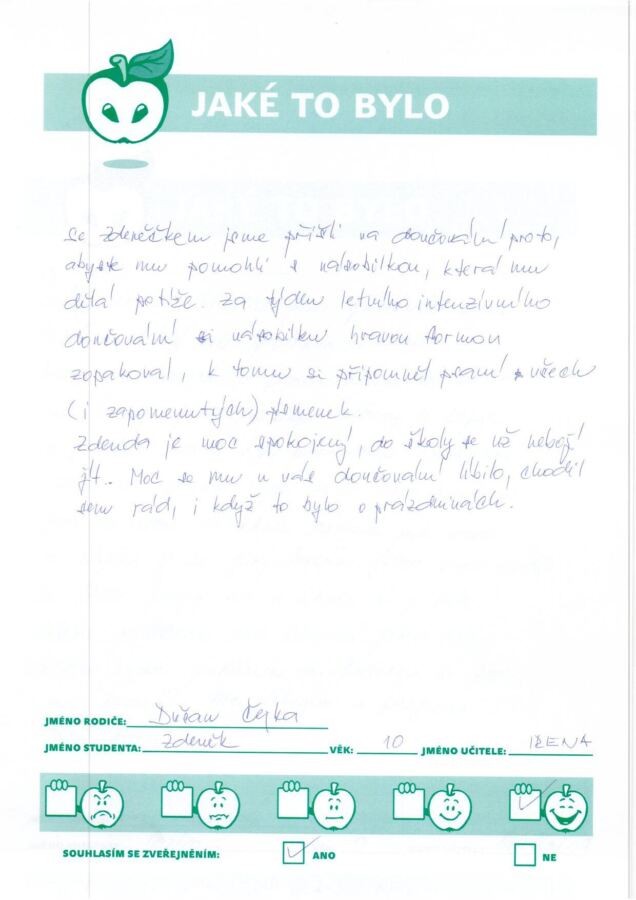 JAKÉ TO BYLO
Se Zdenečkem jsme přišli na doučování proto,
abyste mu pomohli s násobilkou, která mu
dělá potíže. Za týden letního intenzívního
doučování si násobilku hravou formou
zopakoval, k tomu si připomněl psaní všech
(i zapomenutých) písmenek.
Zdenda je moc spokojený, do školy se už nebojí
jít. Moc se mu u vás doučování líbilo, chodil
sem rád, i když to bylo o prázdninách.
JMÉNO RODIČE: Dušan Čejka
JMÉNO STUDENTA: Zdeněk VĚK: 10 JMÉNO UČITELE: IRENA
SOUHLASÍM SE ZVEŘEJNĚNÍM: ANO NE